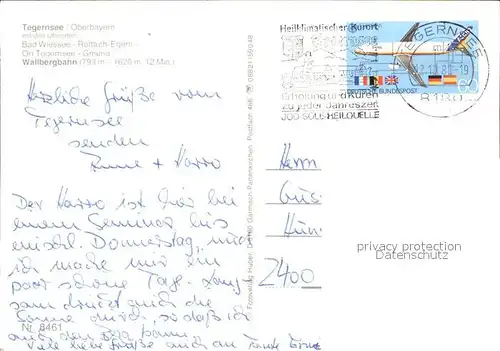 Tegernsee / Oberbayern
mit den Uferorten
Bad Wiessee - Rottach-Egern -
Ort Tegernsee - Gmund
Wallbergbahn (793 m - 1620 m 12 Min.)
Herzliche Grüße vom
Tegernsee
senden
Anne + Harro
Der Harro ist hier bei
einem Seminar bis
einschl. Donnerstag, und
ich mache mir ein
paar schöne Tage. Lang
sam drückt auch die
Sonne durch, so daß ich
auch den
Viele liebe Grüße auch an Tante
Nr. 8461
Fotoverlag Huber Garmisch-Partenkirchen
Heilklimatischer Kurort
Erholung und Kuren
zu jeder Jahreszeit
JOD-SOLE-HEILQUELLE
TEGERNSEE
8180
DEUTSCHE BUNDESPOST
60
Herrn
Gus
Hün
2400
privacy protection
Datenschutz